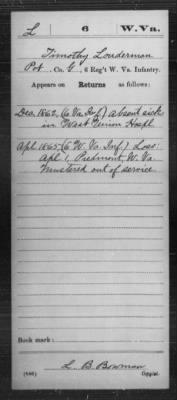 L 6 W.Va.
Timothy Louderman
Pvt., Co. G, 6 Reg't W. Va. Infantry.
Appears on Returns as follows:
Dec. 1862, (6 Va. Inf.) absent sick
in West Union Hospl
Apl 1865 (6 W. Va. Inf.) Loss:
Apl 1, Piedmont, W. Va.
Mustered out of service
Book mark:
L. B. Bowman
(546) Copyist.